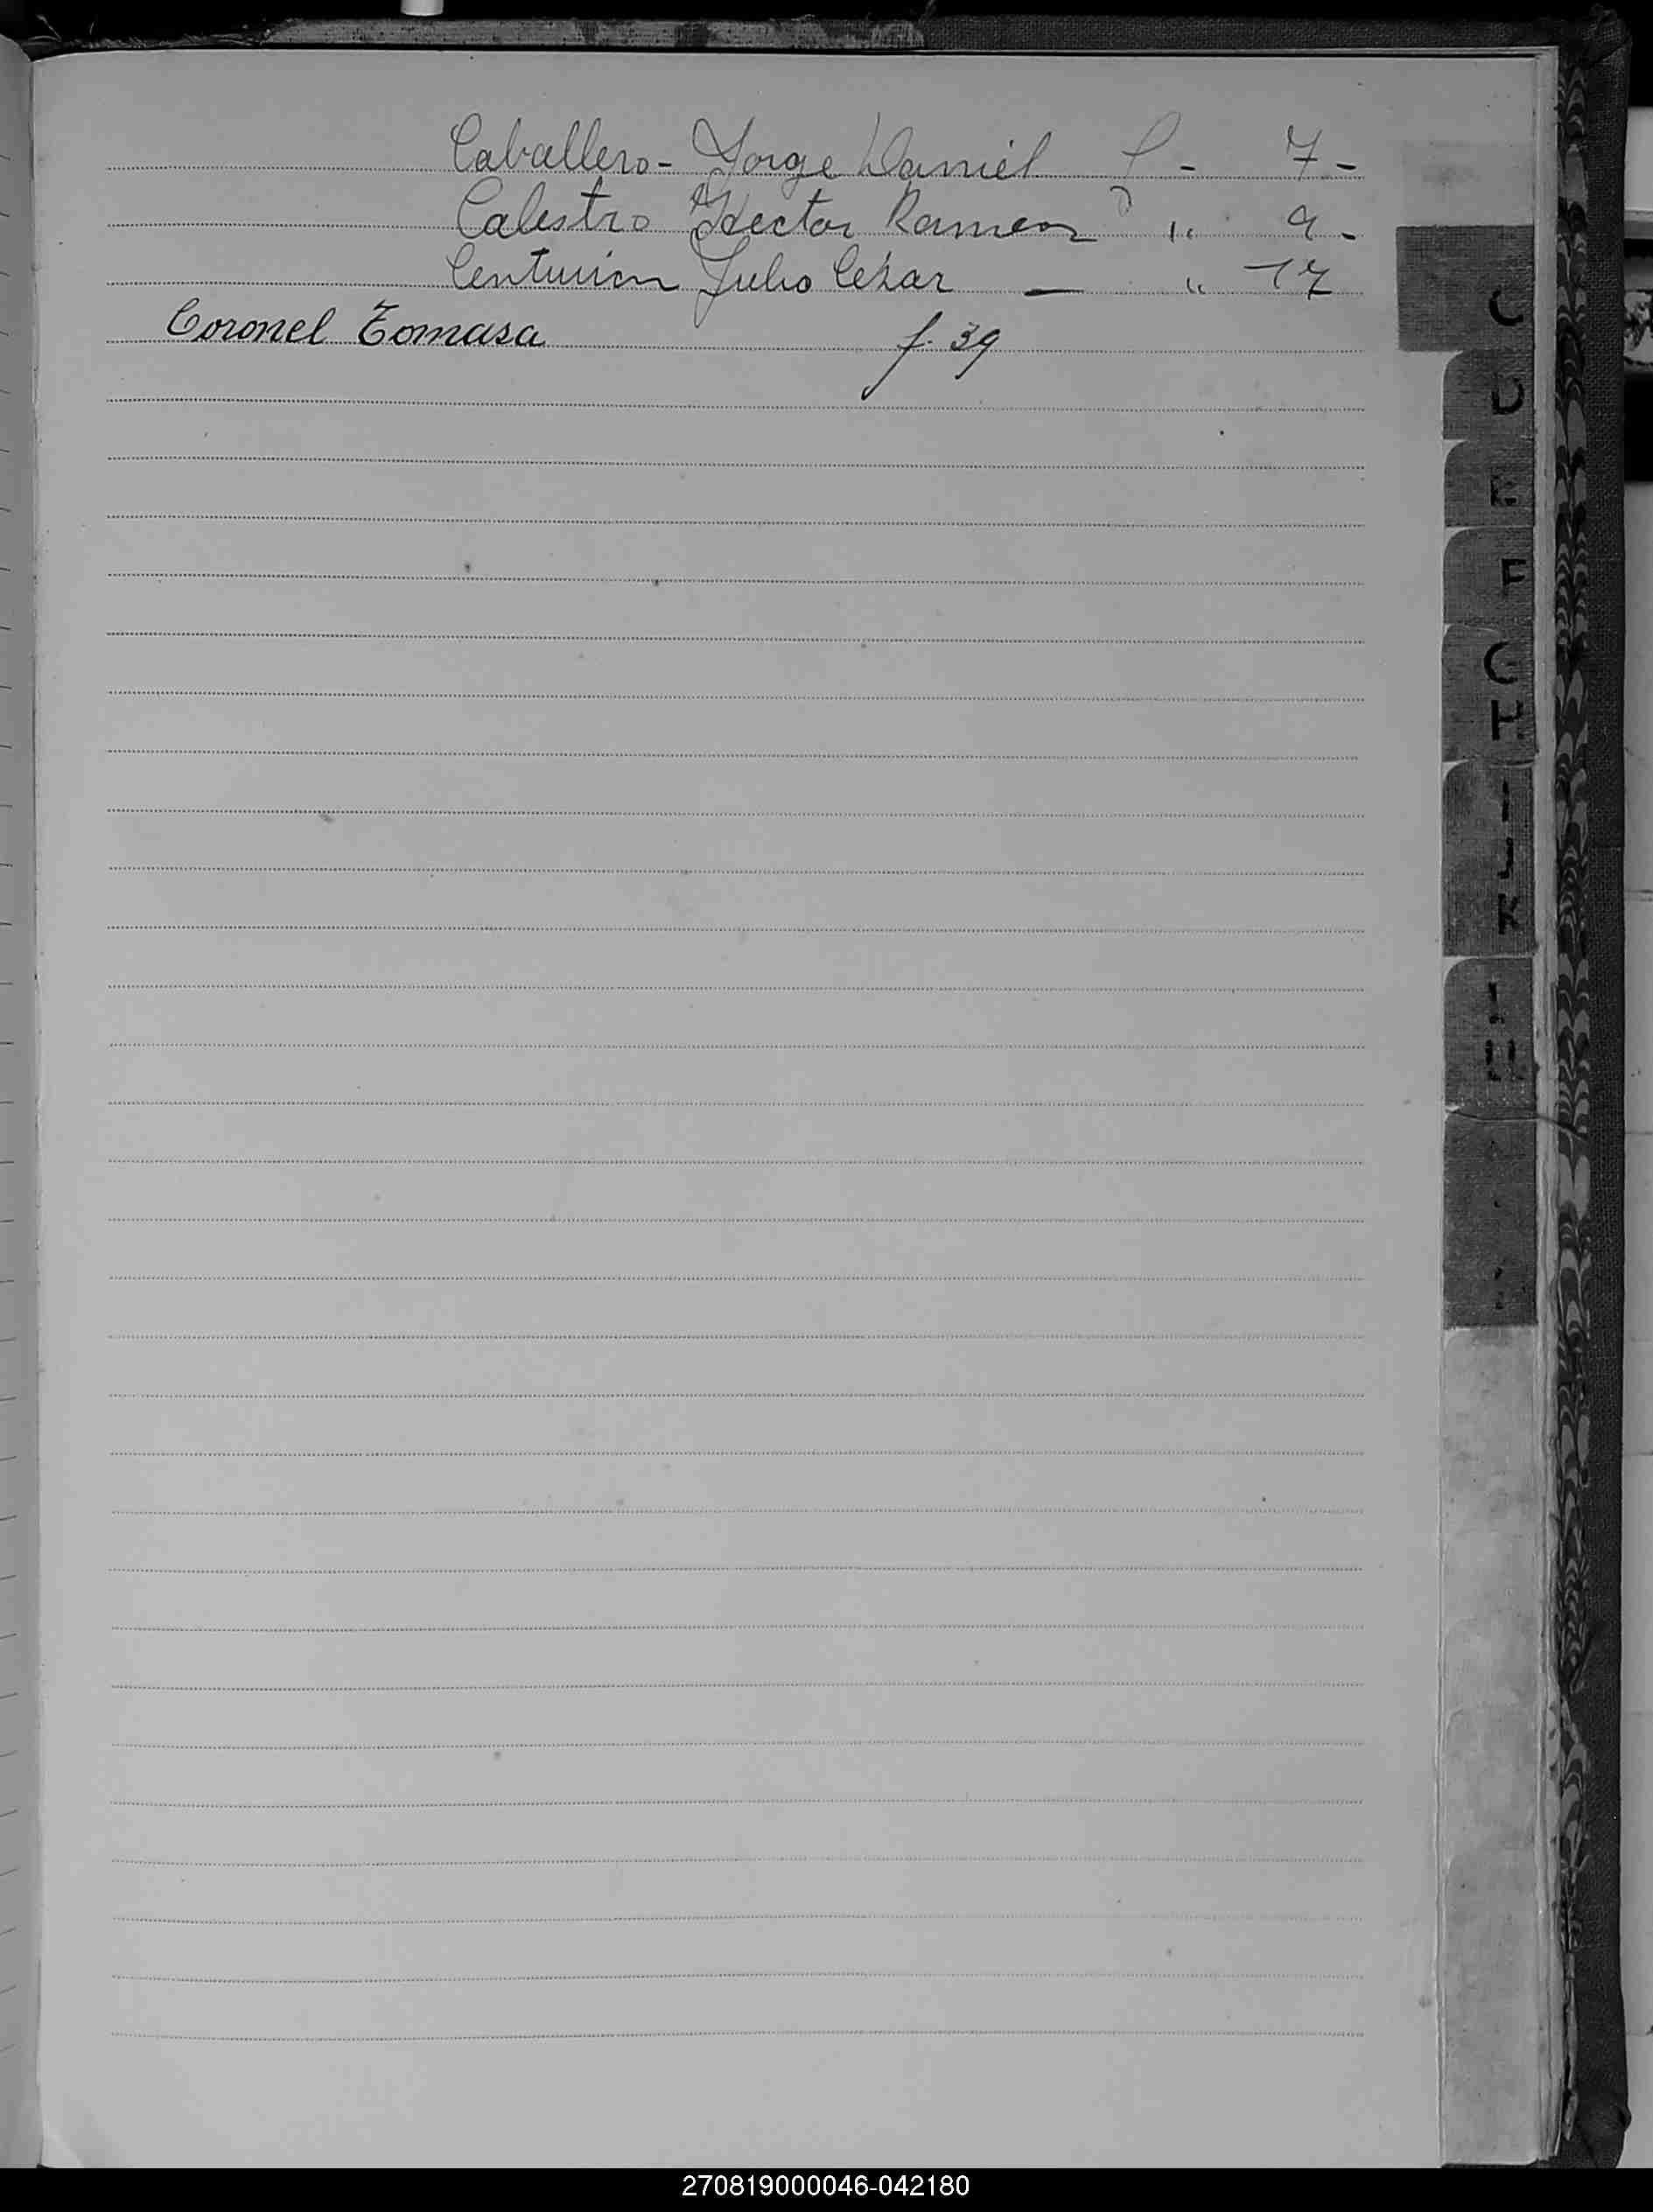 Caballero - Jorge Daniel f - 7 -
Calestro Hector Ramon " 9 -
Centurion Julio Cezar — " 17
Coronel Tomasa f. 39
C
D
E
F
G
H
I
J
K
270819000046-042180